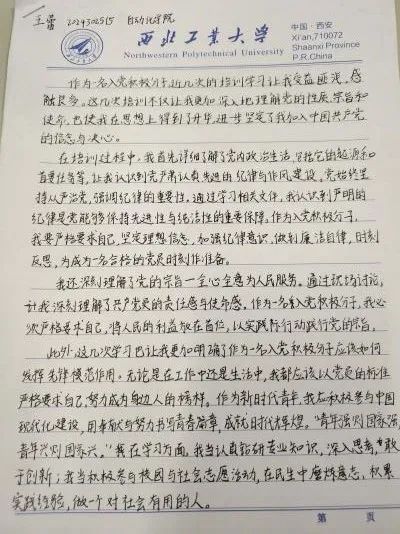 王蕾 2024302515 自动化学院
西北工业大学
Northwestern Polytechnical University
中国·西安
Xi'an,710072
Shaanxi Province
P.R.China
作为一名入党积极分子,近几次的培训学习让我受益匪浅,感
触良多。这几次培训不仅让我更加深入地理解党的性质、宗旨和
使命,也使我在思想上得到了升华,进一步坚定了我加入中国共产党
的信念与决心。
在培训过程中,我首先详细了解了党内政治生活,包括它的起源和
首要任务等,让我认识到党严肃认真先进的纪律与作风建设,党始终坚
持从严治党,强调纪律的重要性。通过学习相关文件,我认识到严明的
纪律是党能够保持先进性与纯洁性的重要保障,作为入党积极分子,
我要严格要求自己,坚定理想信念,加强纪律意识,做到廉洁自律,时刻
反思,为成为一名合格的党员时刻作准备。
我还深刻理解了党的宗旨—全心全意为人民服务。通过 讨论,
让我深刻理解了共产党员的责任感与使命感。作为一名入党积极分子,我必
须严格要求自己,将人民的利益放在首位,以实践际行动践行党的宗旨。
此外,这几次学习也让我更加明确了作为一名入党积极分子应该如何
发挥先锋模范作用。无论是在工作中还是生活中,我都应该以党员的标准
严格要求自己,努力成为身边人的榜样。作为新时代青年,我应积极参与中国
现代化建设,用奉献与努力书写青春篇章,成就时代辉煌。“青年强则国家强,
青年兴则国家兴。”我在学习方面,我当认真钻研专业知识,深入思考,敢
于创新;我当积极参与校园与社会志愿活动,在民生中磨炼意志,积累
实践经验,做一个对社会有用的人。
第 页